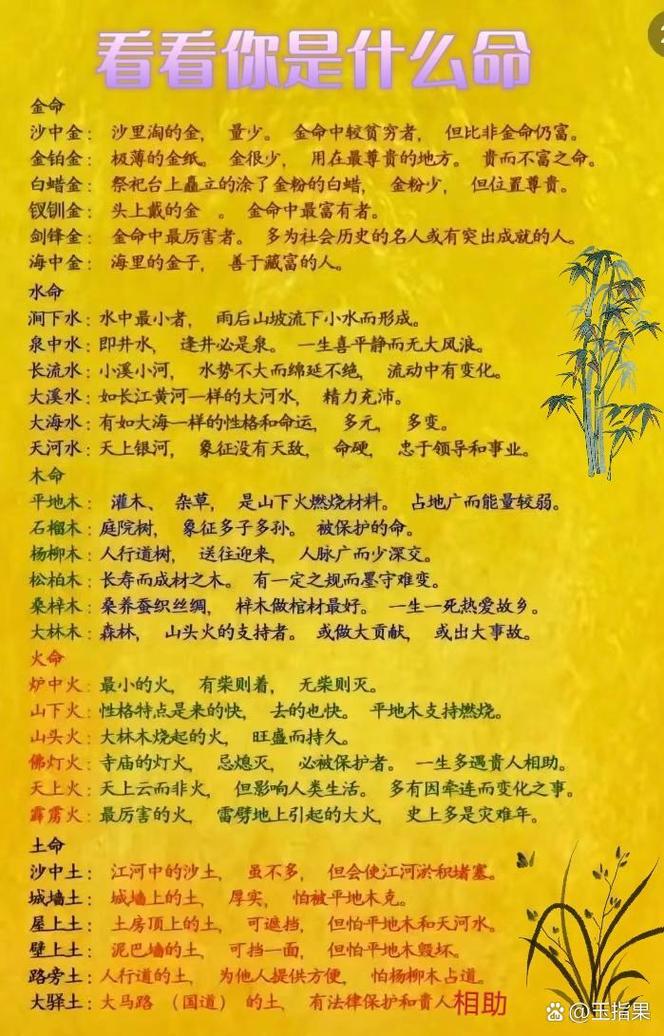 看看你是什么命
金命
沙中金：沙里淘的金，量少。金命中较贫穷者，但比非金命仍富。
金铂金：极薄的金纸。金很少，用在最尊贵的地方。贵而不富之命。
白蜡金：祭祀台上矗立的涂了金粉的白蜡，金粉少，但位置尊贵。
钗钏金：头上戴的金。金命中最富有者。
剑锋金：金命中最厉害者。多为社会历史的名人或有突出成就的人。
海中金：海里的金子，善于藏富的人。
水命
涧下水：水中最小者，雨后山坡流下小水而形成。
泉中水：即井水，逢井必是泉。一生喜平静而无大风浪。
长流水：小溪小河，水势不大而绵延不绝，流动中有变化。
大溪水：如长江黄河一样的大河水，精力充沛。
大海水：有如大海一样的性格和命运，多元，多变。
天河水：天上银河，象征没有天敌，命硬，忠于领导和事业。
木命
平地木：灌木、杂草，是山下火燃烧材料。占地广而能量较弱。
石榴木：庭院树，象征多子多孙。被保护的命。
杨柳木：人行道树，送往迎来，人脉广而少深交。
松柏木：长寿而成材之木。有一定之规而墨守难变。
桑梓木：桑养蚕织丝绸，梓木做棺材最好。一生一死热爱故乡。
大林木：森林，山头火的支持者。或做大贡献，或出大事故。
火命
炉中火：最小的火，有柴则着，无柴则灭。
山下火：性格特点是来的快，去的也快。平地木支持燃烧。
山头火：大林木烧起的火，旺盛而持久。
佛灯火：寺庙的灯火，忌熄灭，必被保护者。一生多遇贵人相助。
天上火：天上云而非火，但影响人类生活。多有因牵连而变化之事。
霹雳火：最厉害的火，雷劈地上引起的大火，史上多是灾难年。
土命
沙中土：江河中的沙土，虽不多，但会使江河淤积堵塞。
城墙土：城墙上的土，厚实，怕被平地木克。
屋上土：土房顶上的土，可遮挡，但怕平地木和天河水。
壁上土：泥巴墙的土，可挡一面，但怕平地木毁坏。
路旁土：人行道的土，为他人提供方便，怕杨柳木占道。
大驿土：大马路（国道）的土，有法律保护和贵人相助
@玉指果